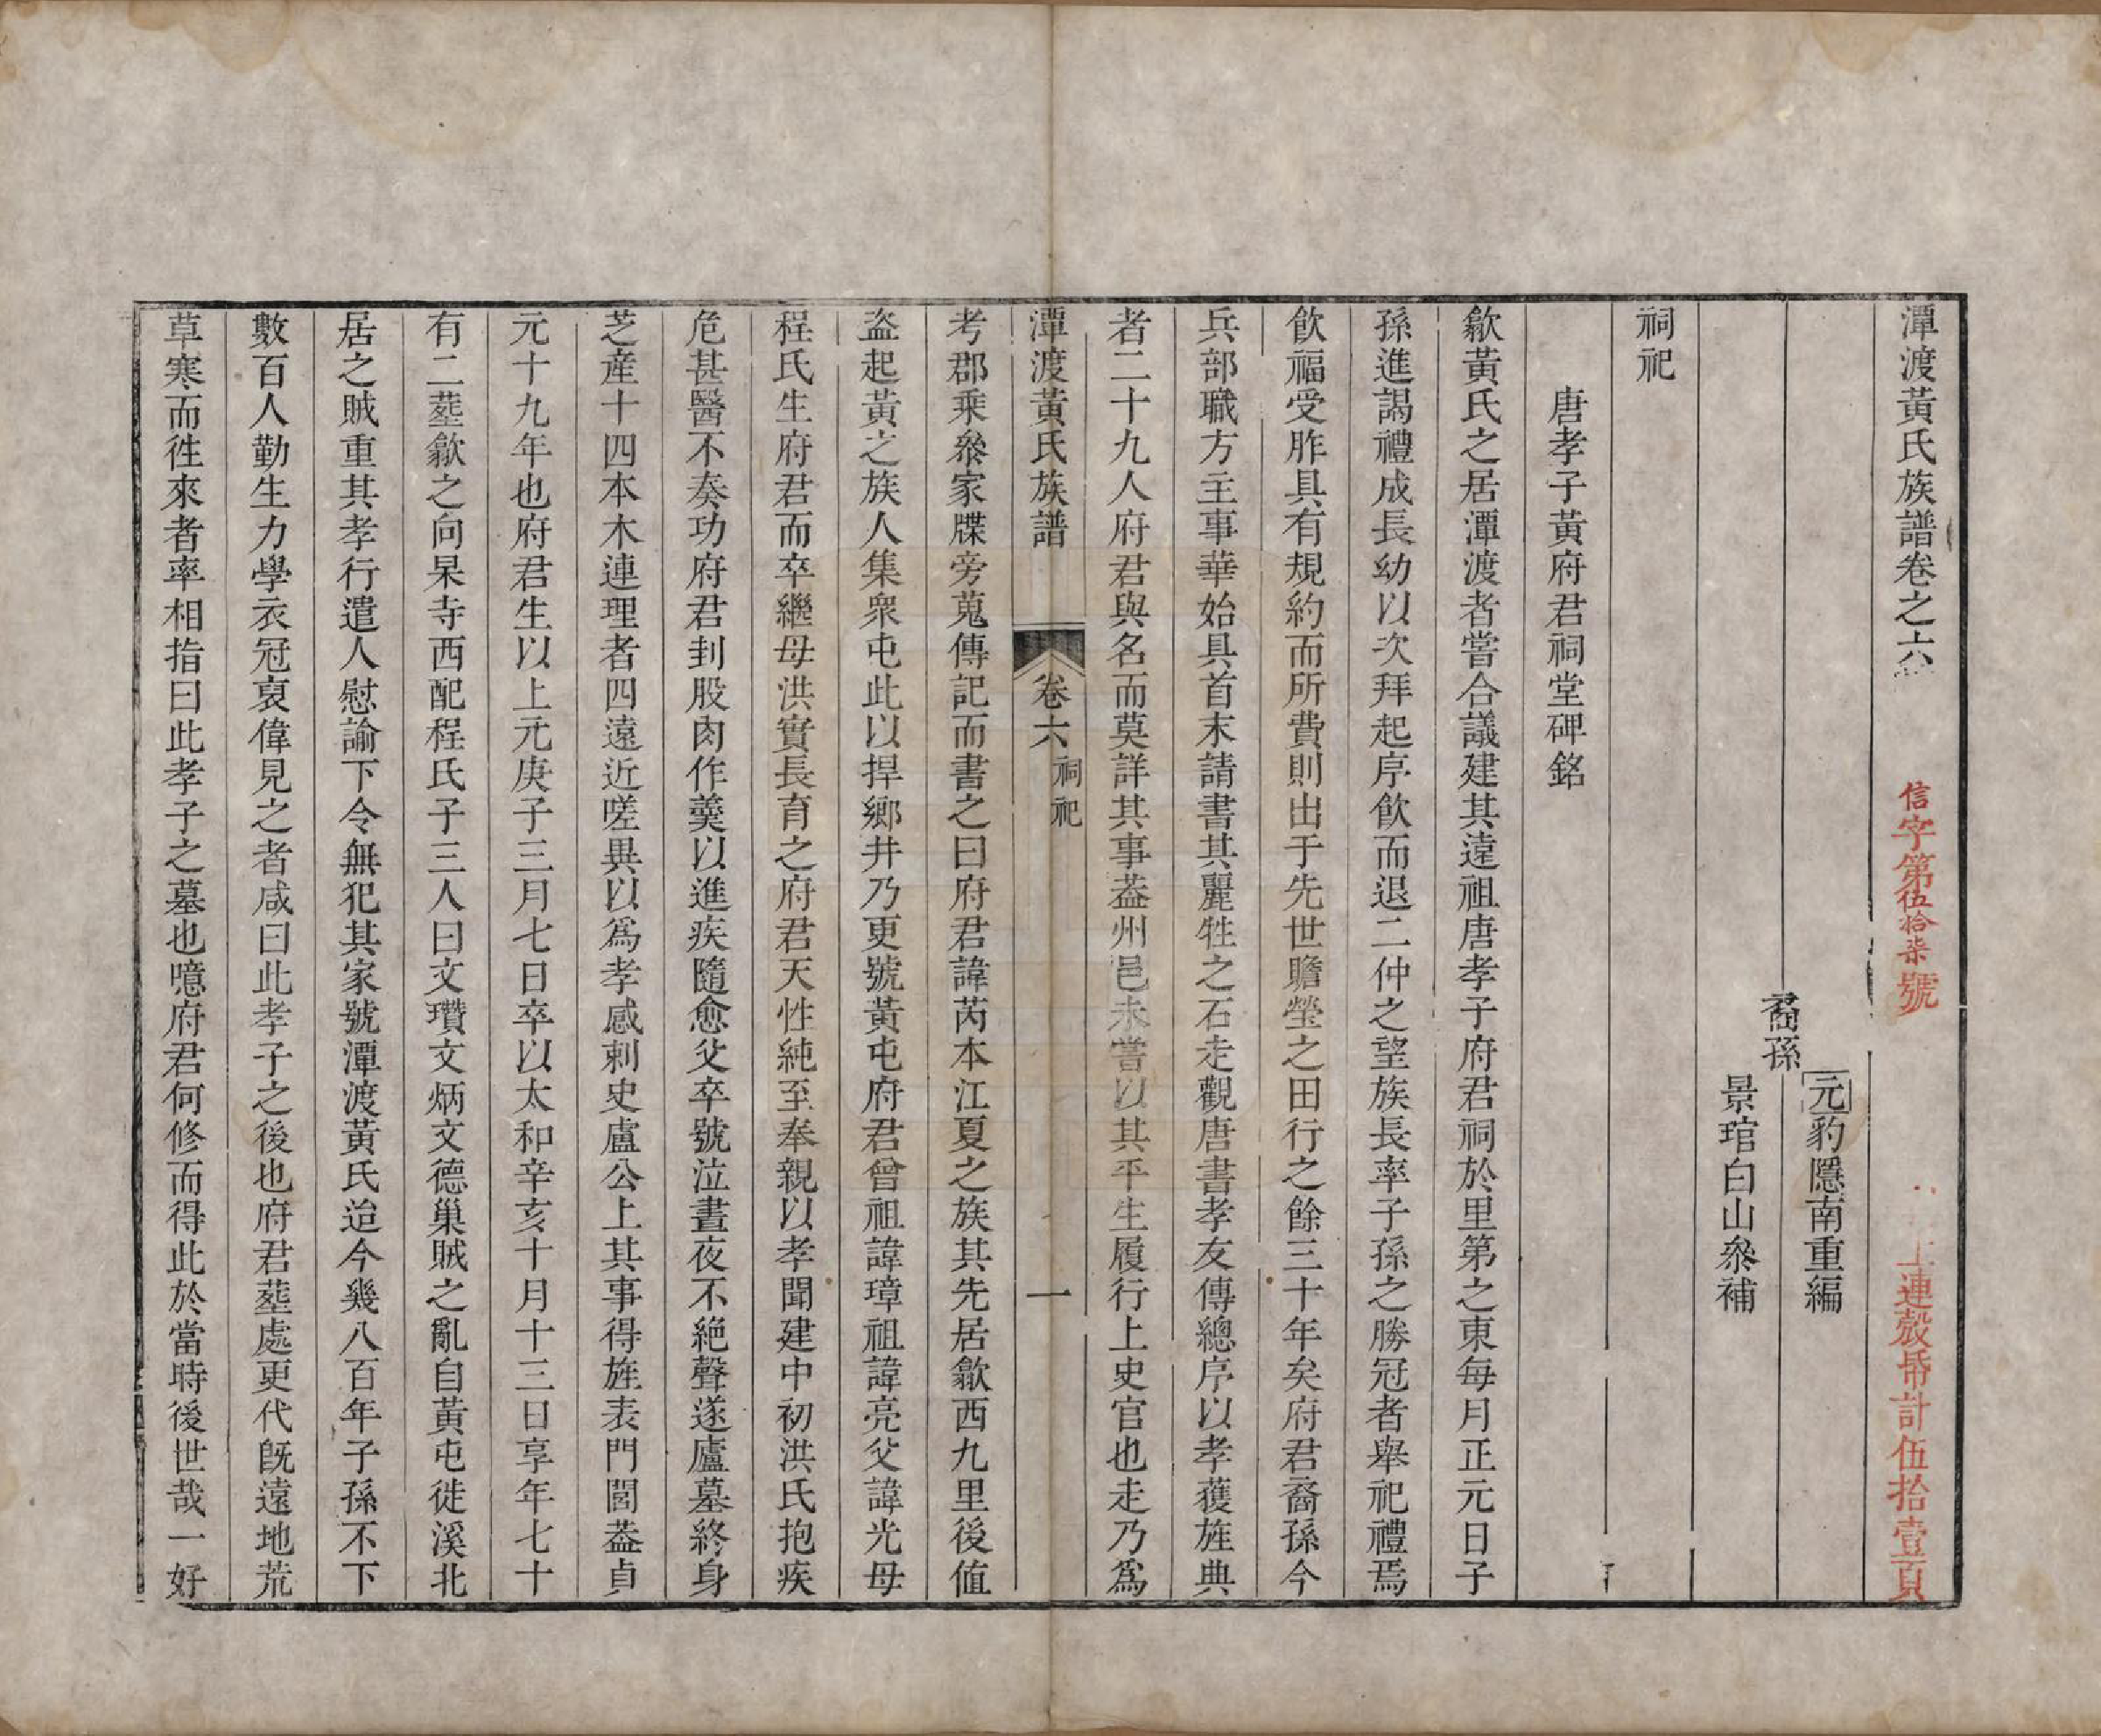 潭渡黃氏族譜卷之六
信字第伍拾柒號
上連殼帋計伍拾壹頁
裔孫
元豹隱南重編
景琯白山叅補
祠祀
唐孝子黃府君祠堂碑銘
歙黃氏之居潭渡者嘗合議建其遠祖唐孝子府君祠於里第之東每月正元日子
孫進謁禮成長幼以次拜起序飲而退二仲之望族長率子孫之勝冠者舉祀禮焉
飲福受胙具有規約而所費則出于先世贍塋之田行之餘三十年矣府君裔孫今
兵部職方主事華始具首末請書其麗牲之石走觀唐書孝友傳總序以孝獲旌典
者二十九人府君與名而莫詳其事葢州邑未嘗以其平生履行上史官也走乃爲
潭渡黃氏族譜
卷六
祠祀
一
考郡乘叅家牒旁蒐傳記而書之曰府君諱芮本江夏之族其先居歙西九里後值
盜起黃之族人集衆屯此以捍鄉井乃更號黃屯府君曾祖諱璋祖諱亮父諱光母
程氏生府君而卒繼母洪實長育之府君天性純至奉親以孝聞建中初洪氏抱疾
危甚醫不奏功府君刲股肉作羹以進疾隨愈父卒號泣晝夜不絶聲遂廬墓終身
芝産十四本木連理者四遠近嗟異以爲孝感刺史盧公上其事得旌表門閭葢貞
元十九年也府君生以上元庚子三月七日卒以太和辛亥十月十三日享年七十
有二葬歙之向杲寺西配程氏子三人曰文瓚文炳文德巢賊之亂自黃屯徙溪北
居之賊重其孝行遣人慰諭下令無犯其家號潭渡黃氏迨今幾八百年子孫不下
數百人勤生力學衣冠裒偉見之者咸曰此孝子之後也府君葬處更代旣遠地荒
草寒而徃來者率相指曰此孝子之墓也噫府君何修而得此於當時後世哉一好